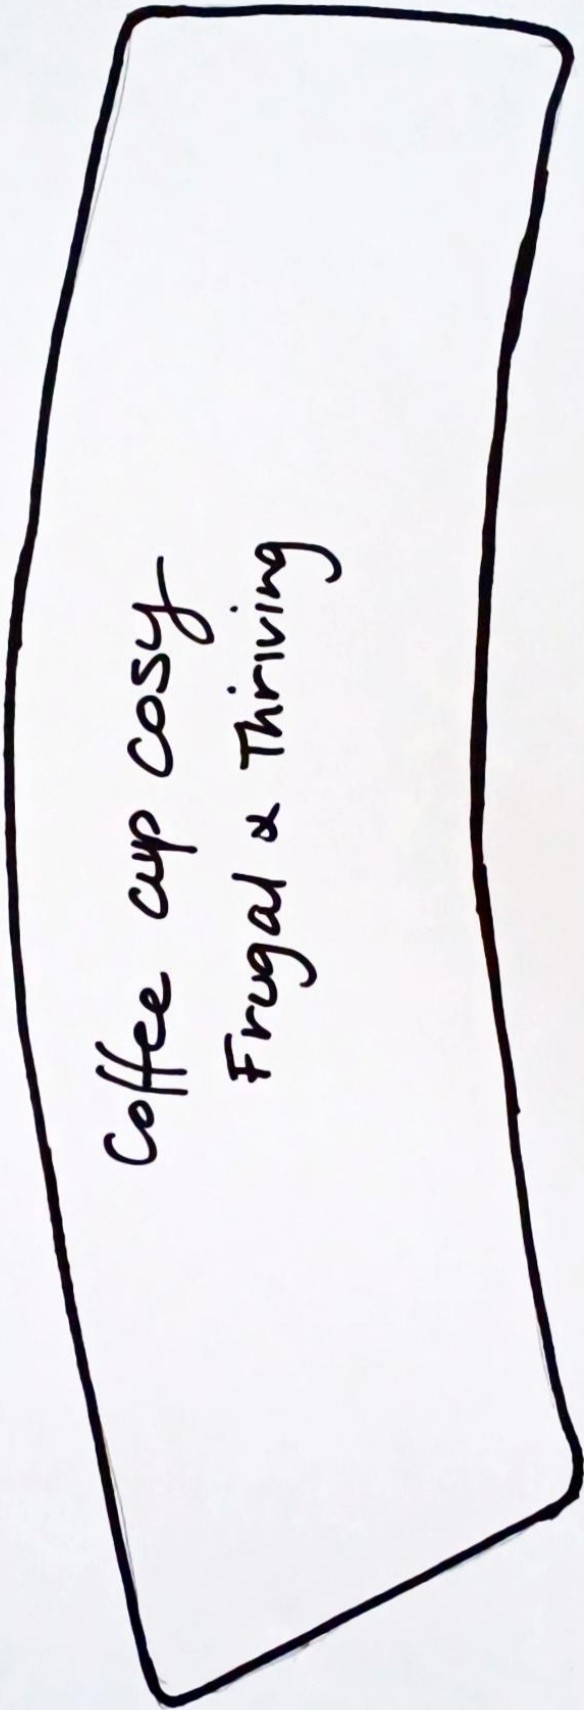 Coffee cup cosy
Frugal & Thriving